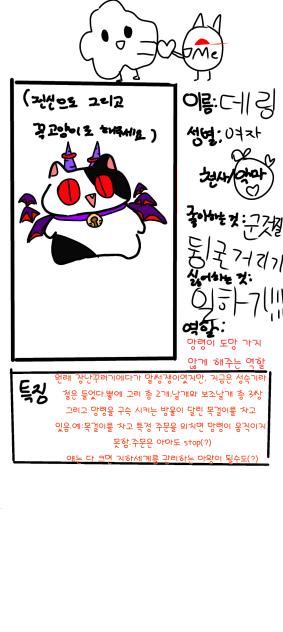 Me
(전신으로 그리고
꼭고양이로 해주세요)
이름:데링
성별:여자
천사/악마
좋아하는 것:군것질
뒹굴거리기
싫어하는 것:
일하기!!!
역할:
망령이 도망 가지
않게 해주는 역할
특징
원래 장난꾸러기에다가 말썽쟁이였지만, 지금은 성숙기라
철은 들었다.뿔에 그리 총 2개.날개와 보조날개 총 3쌍
그리고 망령을 구속 시키는 방울이 달린 목걸이를 차고
있음.예:목걸이를 차고 특정 주문을 외치면 망령이 움직이지
못함.주문은 아마도 stop(?)
얘는 다 크면 지하세계를 관리하는 마왕이 될수도(?)